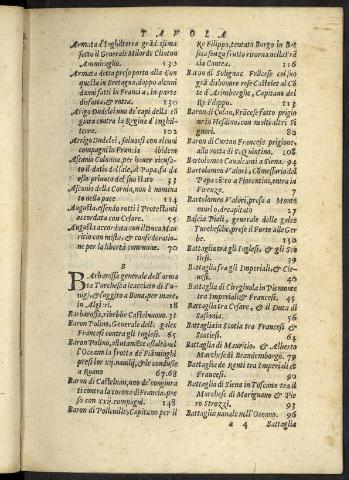 TAVOLA
Armata d'Inghilterra grãdissima
sotto il Generale Milor de Clinton
Ammiraglio. 130
Armata detta preso porto alla Con
quesla in Bretagna, doppo alcuni
danni fatti in Francia, in parte
disfatta, & rotta. 130
Arrigo Dudelei uno de' capi della cõ
giura contra la Regina d'Inghil-
terra. 102
Arrigo Dudelei, saluossi con alcuni
compagni in Francia ibidem
Ascanio Colonna, per hauer ricusa-
to il datio del sale, al Papa, fu da
esso priuato del suo stato 33
Ascanio della Cornia, non è nomina
to nella pace 114
Augusta, essendo rotti i Protestanti
accordata con Cesare. 55
Augusta accordata con il Duca Mau
ritio con mista, & confederatio-
ne per la libertà commune. 70
B
Barbarossa generale dell'arma
ta Turchesca scacciato di Tu-
nigi, & fuggito a Bona, per mare,
in Algieri. 18
Barbarossa, riebbe Castelnuouo. 31
Baron Polino, Generale delle galee
Francesi contra gli Inglesi. 65
Baron Polino, allutamẽte assaltò nel
l'Oceano la frotta de' Fiãminghi
presi lor xxi. nauilij, & le condusse
a Roano 67.68
Baron di Castelnau, uno de' congiura
ti contra la corona di Francia, pre
so con xxij. compagni. 148
Baron di Polleuille, Capitano per il
Re Filippo, tentato Borgo in Bre
scia senza frutto ritorna nella Frã
cia Contea. 116
Baron di Solignac Frãcese col suo
grã disonore rese Castelet al Cõ-
te d'Arimberghe, Capitano del
Re Filippo. 113
Baron di Culan, Frãcese fatto prigio
ne in Hesdino, con molti altri Si
gnori. 80
Baron di Curton Francese prigione,
alla rotta di S. Quintino. 108
Bartolomeo Caualcanti a Siena. 94
Bartolomeo Valori, Cõmessario del
Papa vsci a Fiorentini, entra in
Firenze. 7
Bartolomeo Valori, preso a Monte
murlo, decapitato 27
Bascia Pialì, generale delle galee
Turchesche, prese il Forte alle Ger
be. 150
Battaglia tra gli Inglesi, & gli Sco
tiesi. 39
Battaglia fra gli Imperiali, & Cle-
uesi. 40
Battaglia di Ciregiuola in Piemonte
tra Imperiali, & Francesi. 45
Battaglia tra Cesare, & il Duca di
Sassonia. 56
Battaglia in Scotia tra Francesi &
Scotiesi. 64
Battaglia di Mauritio, & Alberto
Marchese di Brandemborgo. 79
Battaglia de Renti tra Imperiali et
Francesi. 90
Battaglia di Siena in Toscana tra il
Marchese di Marignano, & Pie
ro Strozzi. 93
Battaglia nauale nell'Oceano. 96
a 4 Battaglia